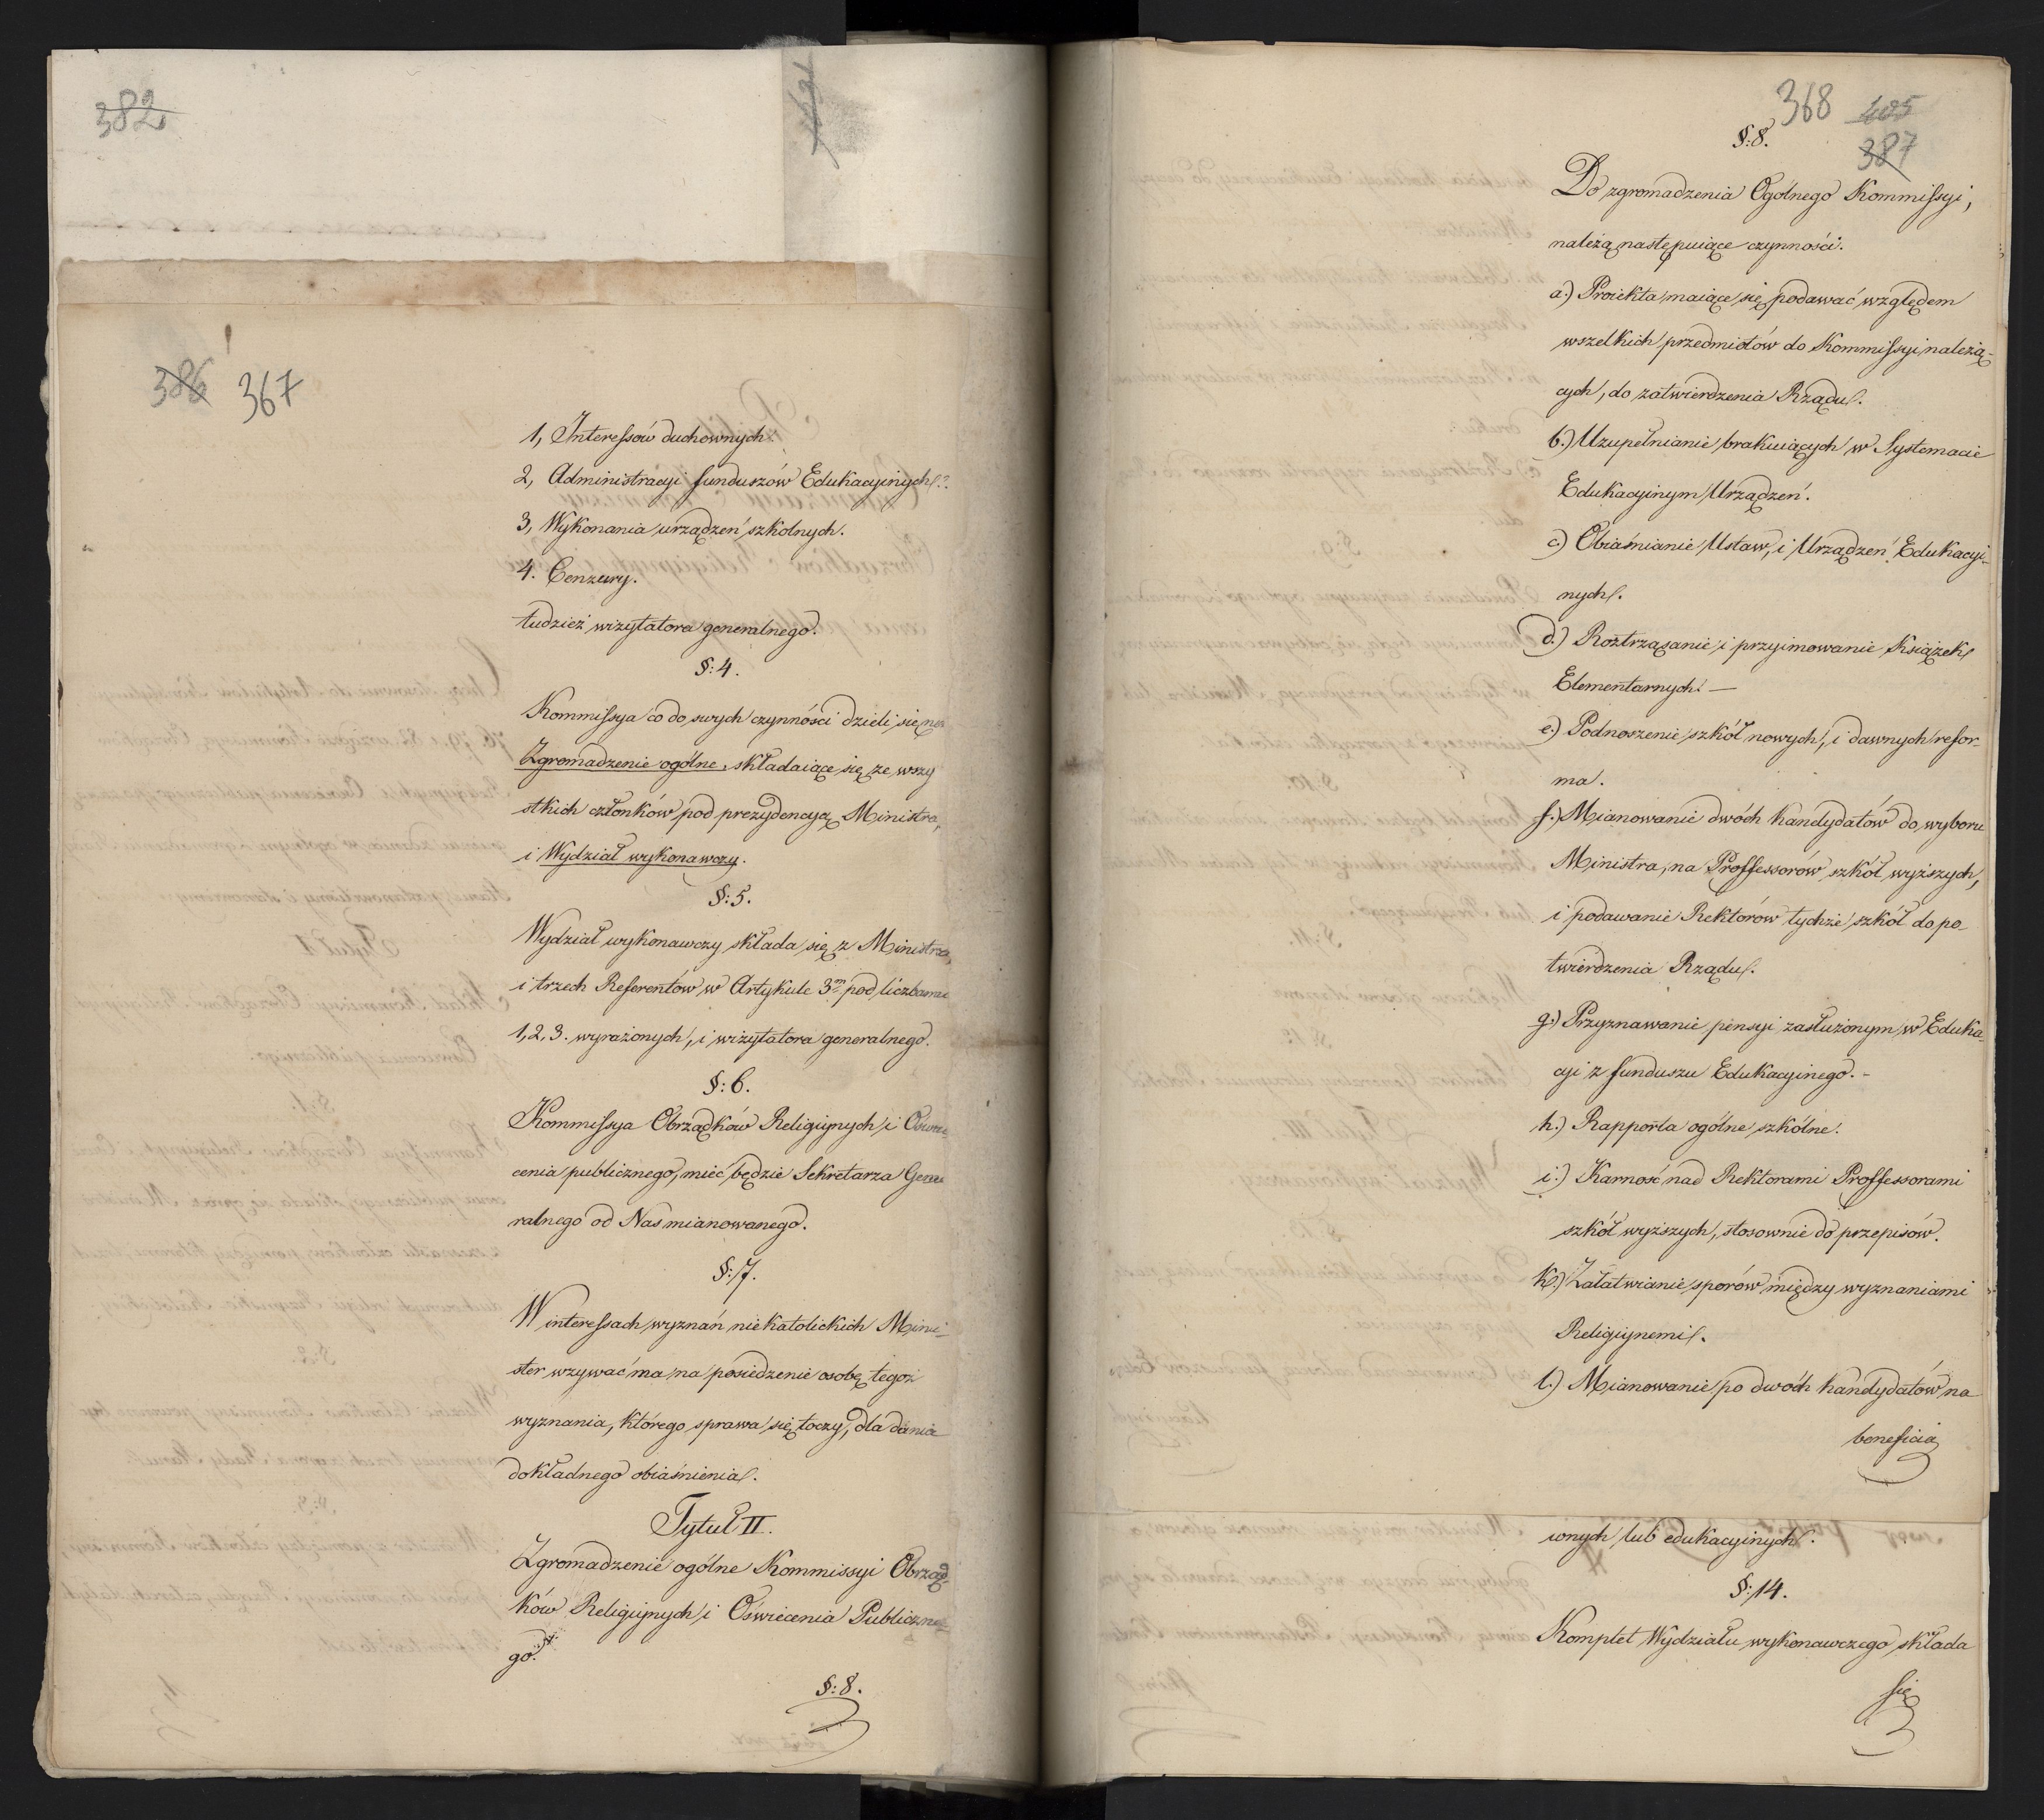 382
386 367
1, Interessów duchownych.
2, Administracyi funduszów Edukacyinych.
3, Wykonania urządzeń szkolnych.
4. Cenzury.
tudzież wizytatora generalnego.
§: 4.
Kommissya co do swych czynności dzieli się na
Zgromadzenie ogólne, składaiące się ze wszy
stkich członków pod prezydencyą Ministra,
i Wydział wykonawczy.
§: 5.
Wydział wykonawczy składa się z Ministra,
i trzech Referentów w Artykule 3m pod liczbami
1, 2, 3. wyrażonych, i wizytatora generalnego.
§: 6.
Kommissya Obrządków Religiynych i Oświe
cenia publicznego, mieć będzie Sekretarza Gene
ralnego od Nas mianowanego.
§: 7.
W interessach wyznań niekatolickich Mini-
ster wzywać ma na posiedzenie osobę tegoż
wyznania, którego sprawa się toczy, dla dania
dokładnego obiaśnienia.
Tytuł II.
Zgromadzenie ogólne Kommissyi Obrząd-
ków Religiynych i Oświecenia Publiczne-
go.
§: 8.
368 405
387
§: 8.
Do zgromadzenia Ogólnego Kommissyi,
należą następuiące czynności.
a.) Proiekta maiące się podawać względem
wszelkich przedmiotów do Kommissyi należą-
cych, do zatwierdzenia Rządu.
b.) Uzupełnianie brakuiących w Systemacie
Edukacyinym Urządzeń.
c.) Obiaśnianie Ustaw, i Urządzeń Edukacyi-
nych.
d.) Roztrząsanie i przyimowanie Książek
Elementarnych. —
e.) Podnoszenie szkół nowych, i dawnych refor-
ma.
f.) Mianowanie dwóch kandydatów do wyboru
Ministra, na Proffessorów szkół wyższych,
i podawanie Rektorów tychże szkół do po-
twierdzenia Rządu.
g.) Przyznawanie pensyi zasłużonym w Eduka-
cyi z funduszu Edukacyinego. -
h.) Rapporta ogólne szkólne.
i.) Karność nad Rektorami Proffessorami
szkół wyższych, stosownie do przepisów.
k.) Załatwianie sporów między wyznaniami
Religiynemi.
l.) Mianowanie po dwóch kandydatów na
beneficia
wnych lub edukacyinych.
§: 14.
Komplet Wydziału wykonawczego składa
się